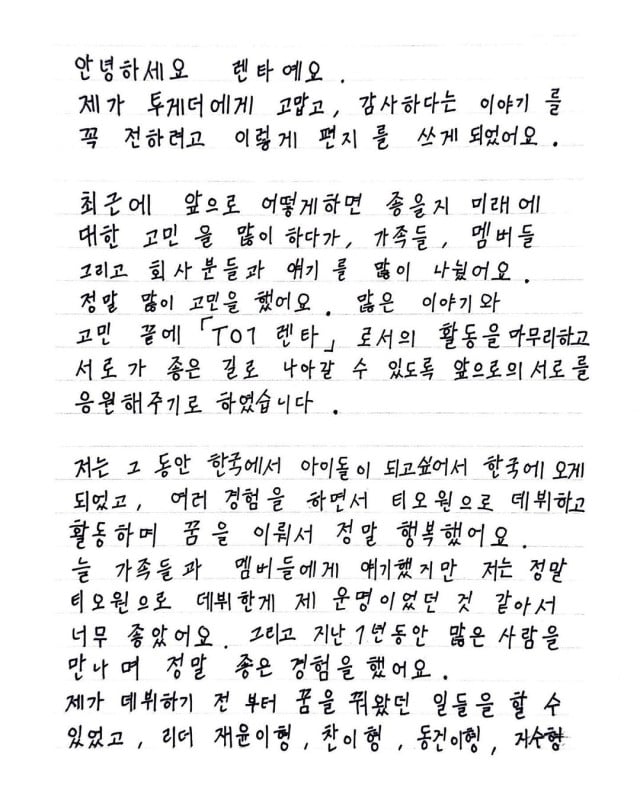 안녕하세요 렌타예요.
제가 투게더에게 고맙고, 감사하다는 이야기 를
꼭 전하려고 이렇게 편지를 쓰게 되었어요.
최근에 앞으로 어떻게하면 좋을지 미래에
대한 고민 을 많이 하다가, 가족들, 멤버들
그리고 회사분들과 얘기를 많이 나눴어요.
정말 많이 고민을 했어요. 많은 이야기와
고민 끝에 「TO1 렌타」 로서의 활동을 마무리하고
서로가 좋은 길로 나아갈 수 있도록 앞으로의 서로를
응원해주기로 하였습니다.
저는 그 동안 한국에서 아이돌이 되고싶어서 한국에 오게
되었고, 여러 경험을 하면서 티오원으로 데뷔하고
활동하며 꿈을 이뤄서 정말 행복했어요.
늘 가족들과 멤버들에게 얘기했지만 저는 정말
티오원으로 데뷔한게 제 운명이었던 것 같아서
너무 좋았어요. 그리고 지난 1년동안 많은 사람을
만나며 정말 좋은 경험을 했어요.
제가 데뷔하기 전 부터 꿈을 꿔왔던 일들을 할 수
있었고, 리더 재윤이형, 찬이형, 동건이형, 지수형